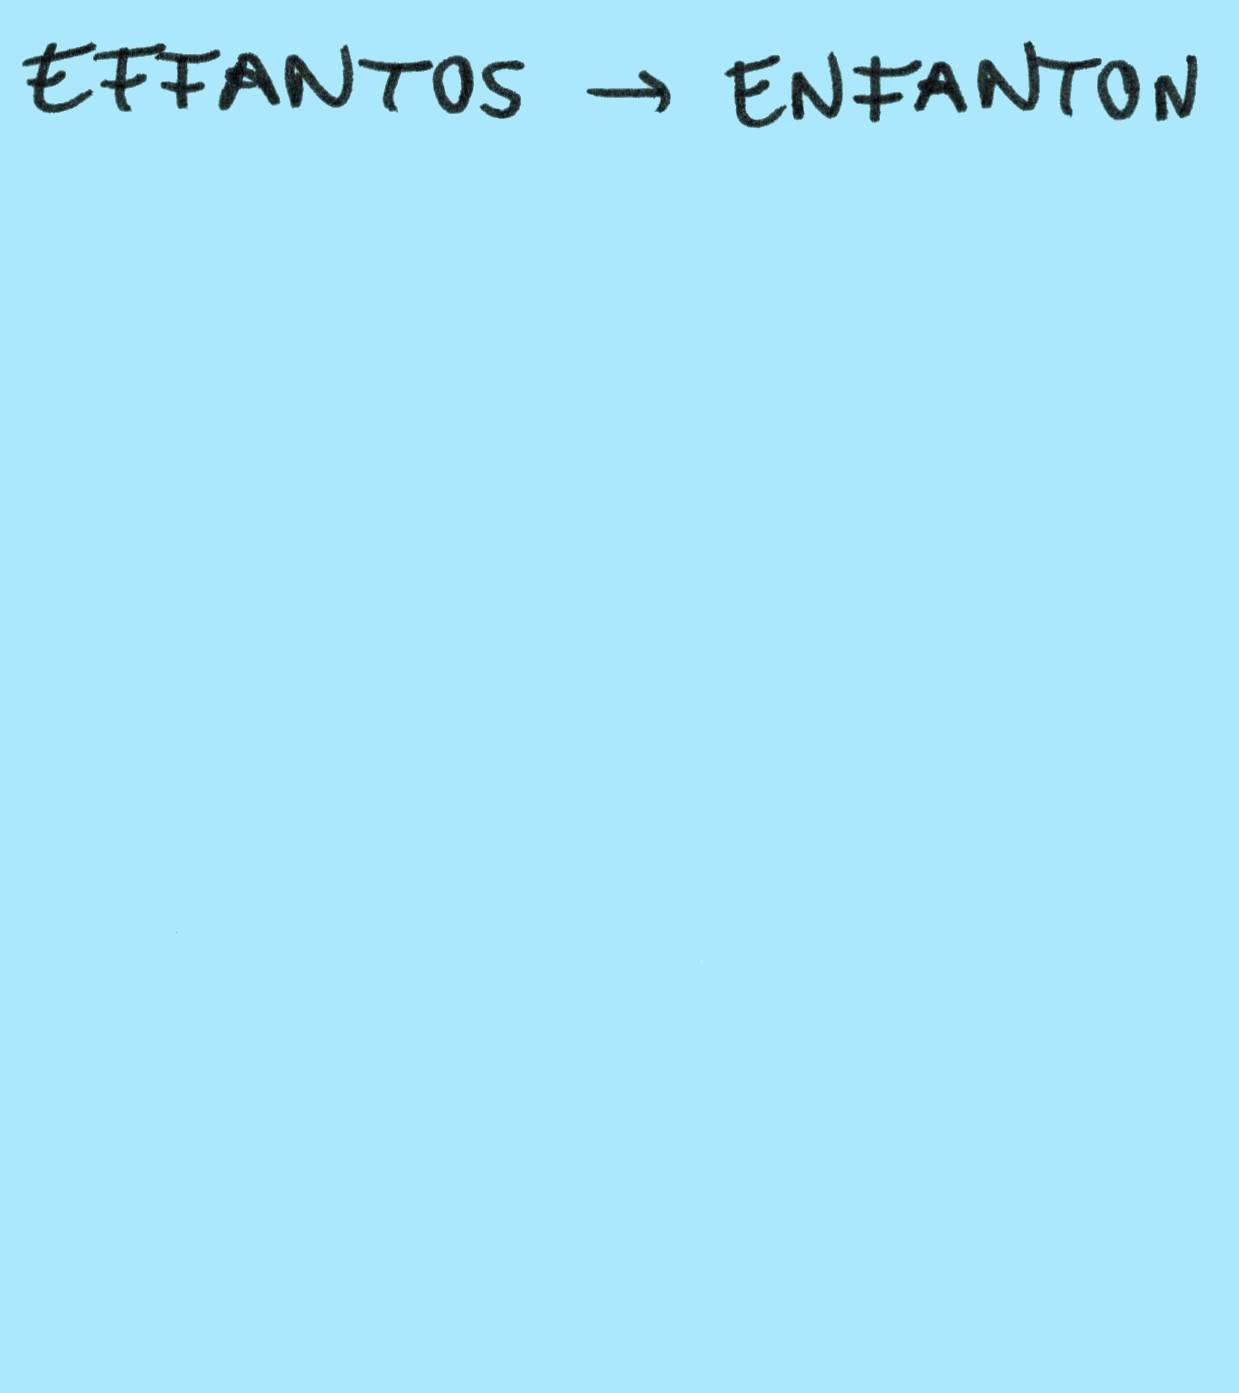 EFFANTOS → ENFANTON